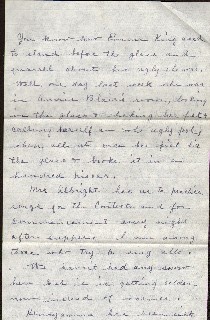 You know how Emma King used
to stand before the glass and
quarrel about her ugly shoes.
Well one day last week she was
in Annie Blair's room, looking
in the glass & shaking her fist &
calling herself an old ugly
when all at once her fist hit
the glass & broke it in a
hundred pieces.
Mrs Albright has us to practice
songs for the Contests and for
Commencement every night
after supper. I am among
those who try to sing alto.
We haven't had any snow
here but it is getting colder
now instead of warmer.
has